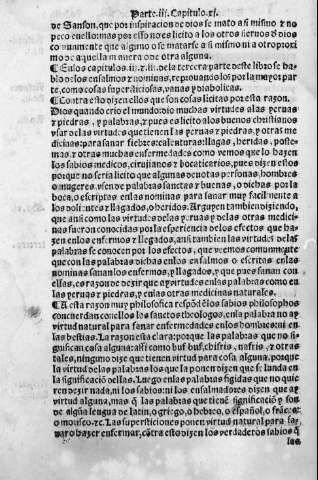 Parte.iij. Capitulo.xj.
de Sanson, que por inspiracion de dios se mato a si mismo y no
peco en ello: mas por esso no es licito a los otros sieruos d̃ dios
comunmente que alguno o se matarse a si mismo ni a otro proxi
mo de aquella manera o de otra alguna.
¶ En los capitulos.ij.y.iij. de la tercera parte deste libro se ha
blo de los ensalmos y nominas, reprouando los por la mayor par
te, como cosas supersticiosas, vanas y diabolicas.
¶ Contra esto dizen ellos que son cosas licitas por esta razon.
Dios quando crio el mundo dio muchas virtudes a las yeruas
y piedras, y palabras, y pues es licito a los buenos christianos
vsar de las virtudes que tienen las yeruas y piedras, y otras me
dicinas: para sanar fiebres: calenturas: llagas, heridas, poste-
mas, y otras muchas enfermedades como vemos que lo hazen
los sabios medicos, cirujanos y boticarios, pues dizen estos
porque no seria licito que algunas deuotas personas, hombres
o mugeres, vsen de palabras sanctas y buenas, o dichas por la
boca, o escriptas en las nominas para sanar muy facilmente a
los dolientes y llagados, o heridos. Arguyen tambien diziendo,
que ansi como las virtudes de las yeruas y de las otras medici
nas fueron conocidas por la experiencia de los efectos que ha-
zen en los enfermos y llegados, ansi tambien las virtudes de las
palabras se conocen por los efectos, que vemos comunmente
que con las palabras dichas en los ensalmos o escritas en las
nominas sanan los enfermos, y llagados, y que pues sanan con
ellas, es razon de dezir que ay virtudes en las palabras como en
las yeruas y piedras, y en las otras medicinas naturales.
¶ A esta razon muy philosofica respõdẽ los sabios philosophos
y concuerdan con ellos los sanctos theologos, en la palabra no ay
virtud natural para sanar enfermedades en los hombres: ni en
las bestias. La razon esta clara: porque las palabras que no si-
gnifican cosa alguna: assi como buf, buf, bifris, nafris, y otras
tales, ningun o dize que tienen virtud para cosa alguna, porque
la virtud de las palabras los que la ponen dizen que se funda en
la significaciõ dellas. Luego en las palabras fingidas que no quie
ren dezir nada, ni los sabios: ni los ensalmadores dizen que ay
virtud alguna, mas q̃ las palabras que tienẽ significaciõ y son
de algũa lengua de latin, o griego, o hebreo, o español, o frãces:
o morisco. &c. Las supersticiones ponen virtud natural para sa-
nar o hazer enfermar, cõtra esto dizen los verdaderos sabios q̃
las